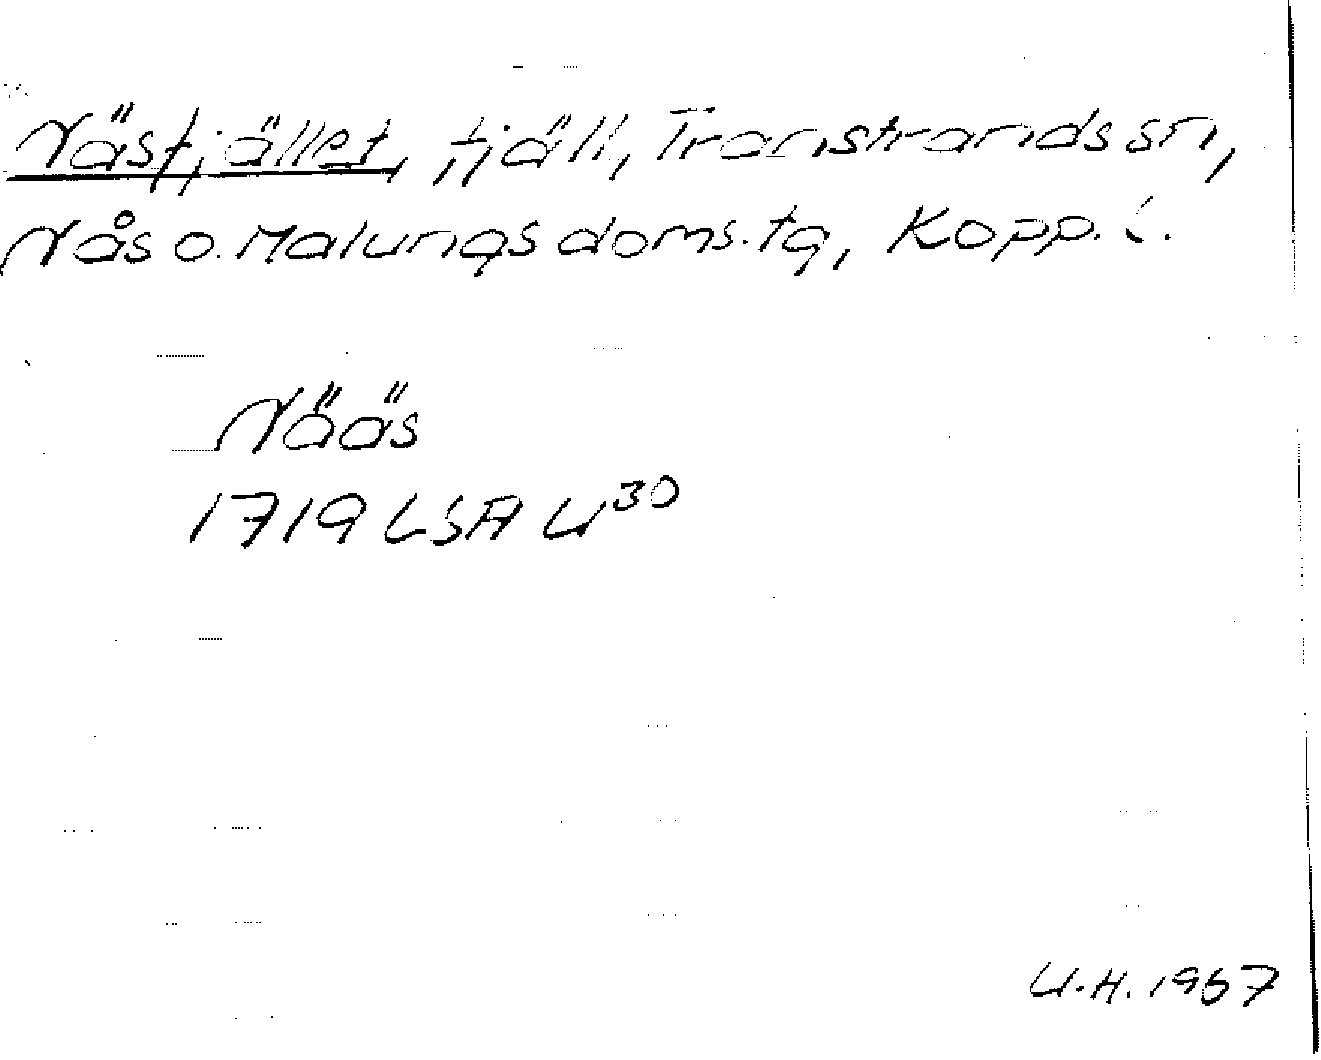 Näsfjället, fjäll, Transtrands sn,
Nås o. Malungs doms. tg, Kopp. l.
Nääs
1719 LSA U³⁰
U.H. 1967